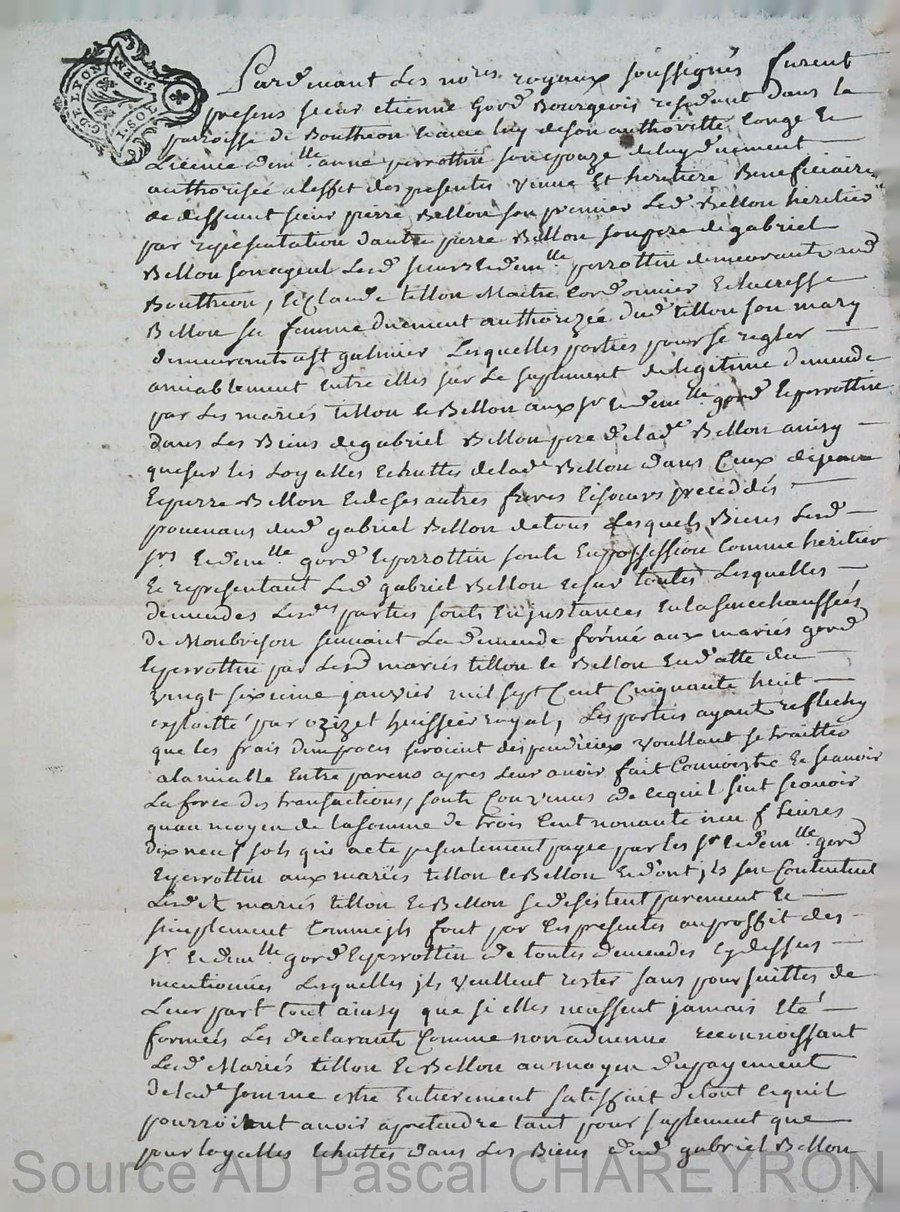 G. DE LYON
Pardevant Les no.res royaux soussignés furent
presens sieur etienne Gord Bourgeois residant dans la
paroisse de Boutheon Et avec luy de son authoritté Conge Et
Licence dem.lle anne perrottin son epouze de luy duement
authorisée a leffet des presentes veuve Et heritiere Beneficiaire
de deffeunt sieur pierre Bellon son premier Led Bellon heritier
par representation dautre pierre Bellon son pere de gabriel
Bellon son ageul Lesd sieurs Et dem.lle perrottin demeurants aud
Boutheon, Et Claude tillon Maitre Cordonnier Et lucresse
Bellon sa femme duement authorizée dud tillon son mary
demeurants a st galmier Lesquelles parties pour se regler
amiablement Entre elles sur Le suplement de legitime demendé
par Les mariés tillon Et Bellon aux sr Et dem.lle gord Et perrottin
dans Les Biens de gabriel Bellon pere de lade Bellon ainsy
que sur les Loyalles Echuttes de lade Bellon dans Ceux de jean
Et pierre Bellon Et de ses autres freres Et soeurs precedés
provenans dud gabriel Bellon de tous Lesquels Biens Lesd
srs Et dem.lle gord Et perrottin sonts En possession Comme heritier
Et representant Led gabriel Bellon Et sur toutes Lesquelles
demendes Lesdes parties sonts En justances En la senechaussée
de Monbrison suivant La demende formé aux mariés gord
Et perrottin par Lesd mariés tillon Et Bellon En datte du
vingt sixieme janvier mil sept Cent Cinquante huit
exploitté par ozizet huissier royal, Les parties ayant reflechy
que les frais dun proces seroient dispendieux voullant se traitter
a lamialle Entre parens apres Leur avoir fait Connoistre Et scavoir
La force des transactions, sonts Convenus de Ce quil suit scavoir
quau moyen de la somme de trois Cent nonante neuf Livres
dix neuf sols qui a ete presentement payée par les sr Et dem.lle gord
Et perrottin aux mariés tillon Et Bellon Et dont jls son Contentent
Lesd mariés tillon Et Bellon se desistent purement Et
simplement Comme jls font par Les presentes au proffit des
sr Et dem.lle gord Et perrottin de toutes demendes Cy dessus
mentionnées Lesquelles jls veullent rester sans poursuittes de
Leur part tout ainsy que si elles neussent jamais Eté
formés Les declarants Comme non advenue reconnoissant
Lesd Mariés tillon Et Bellon au moyen du payement
de lade somme estre Entierement satisffait de tout Ce quil
pourroient avoir a pretendre tant pour suplement que
pour loyalles Echuttes dans Les Biens dud gabriel Bellon
Source AD Pascal CHAREYRON